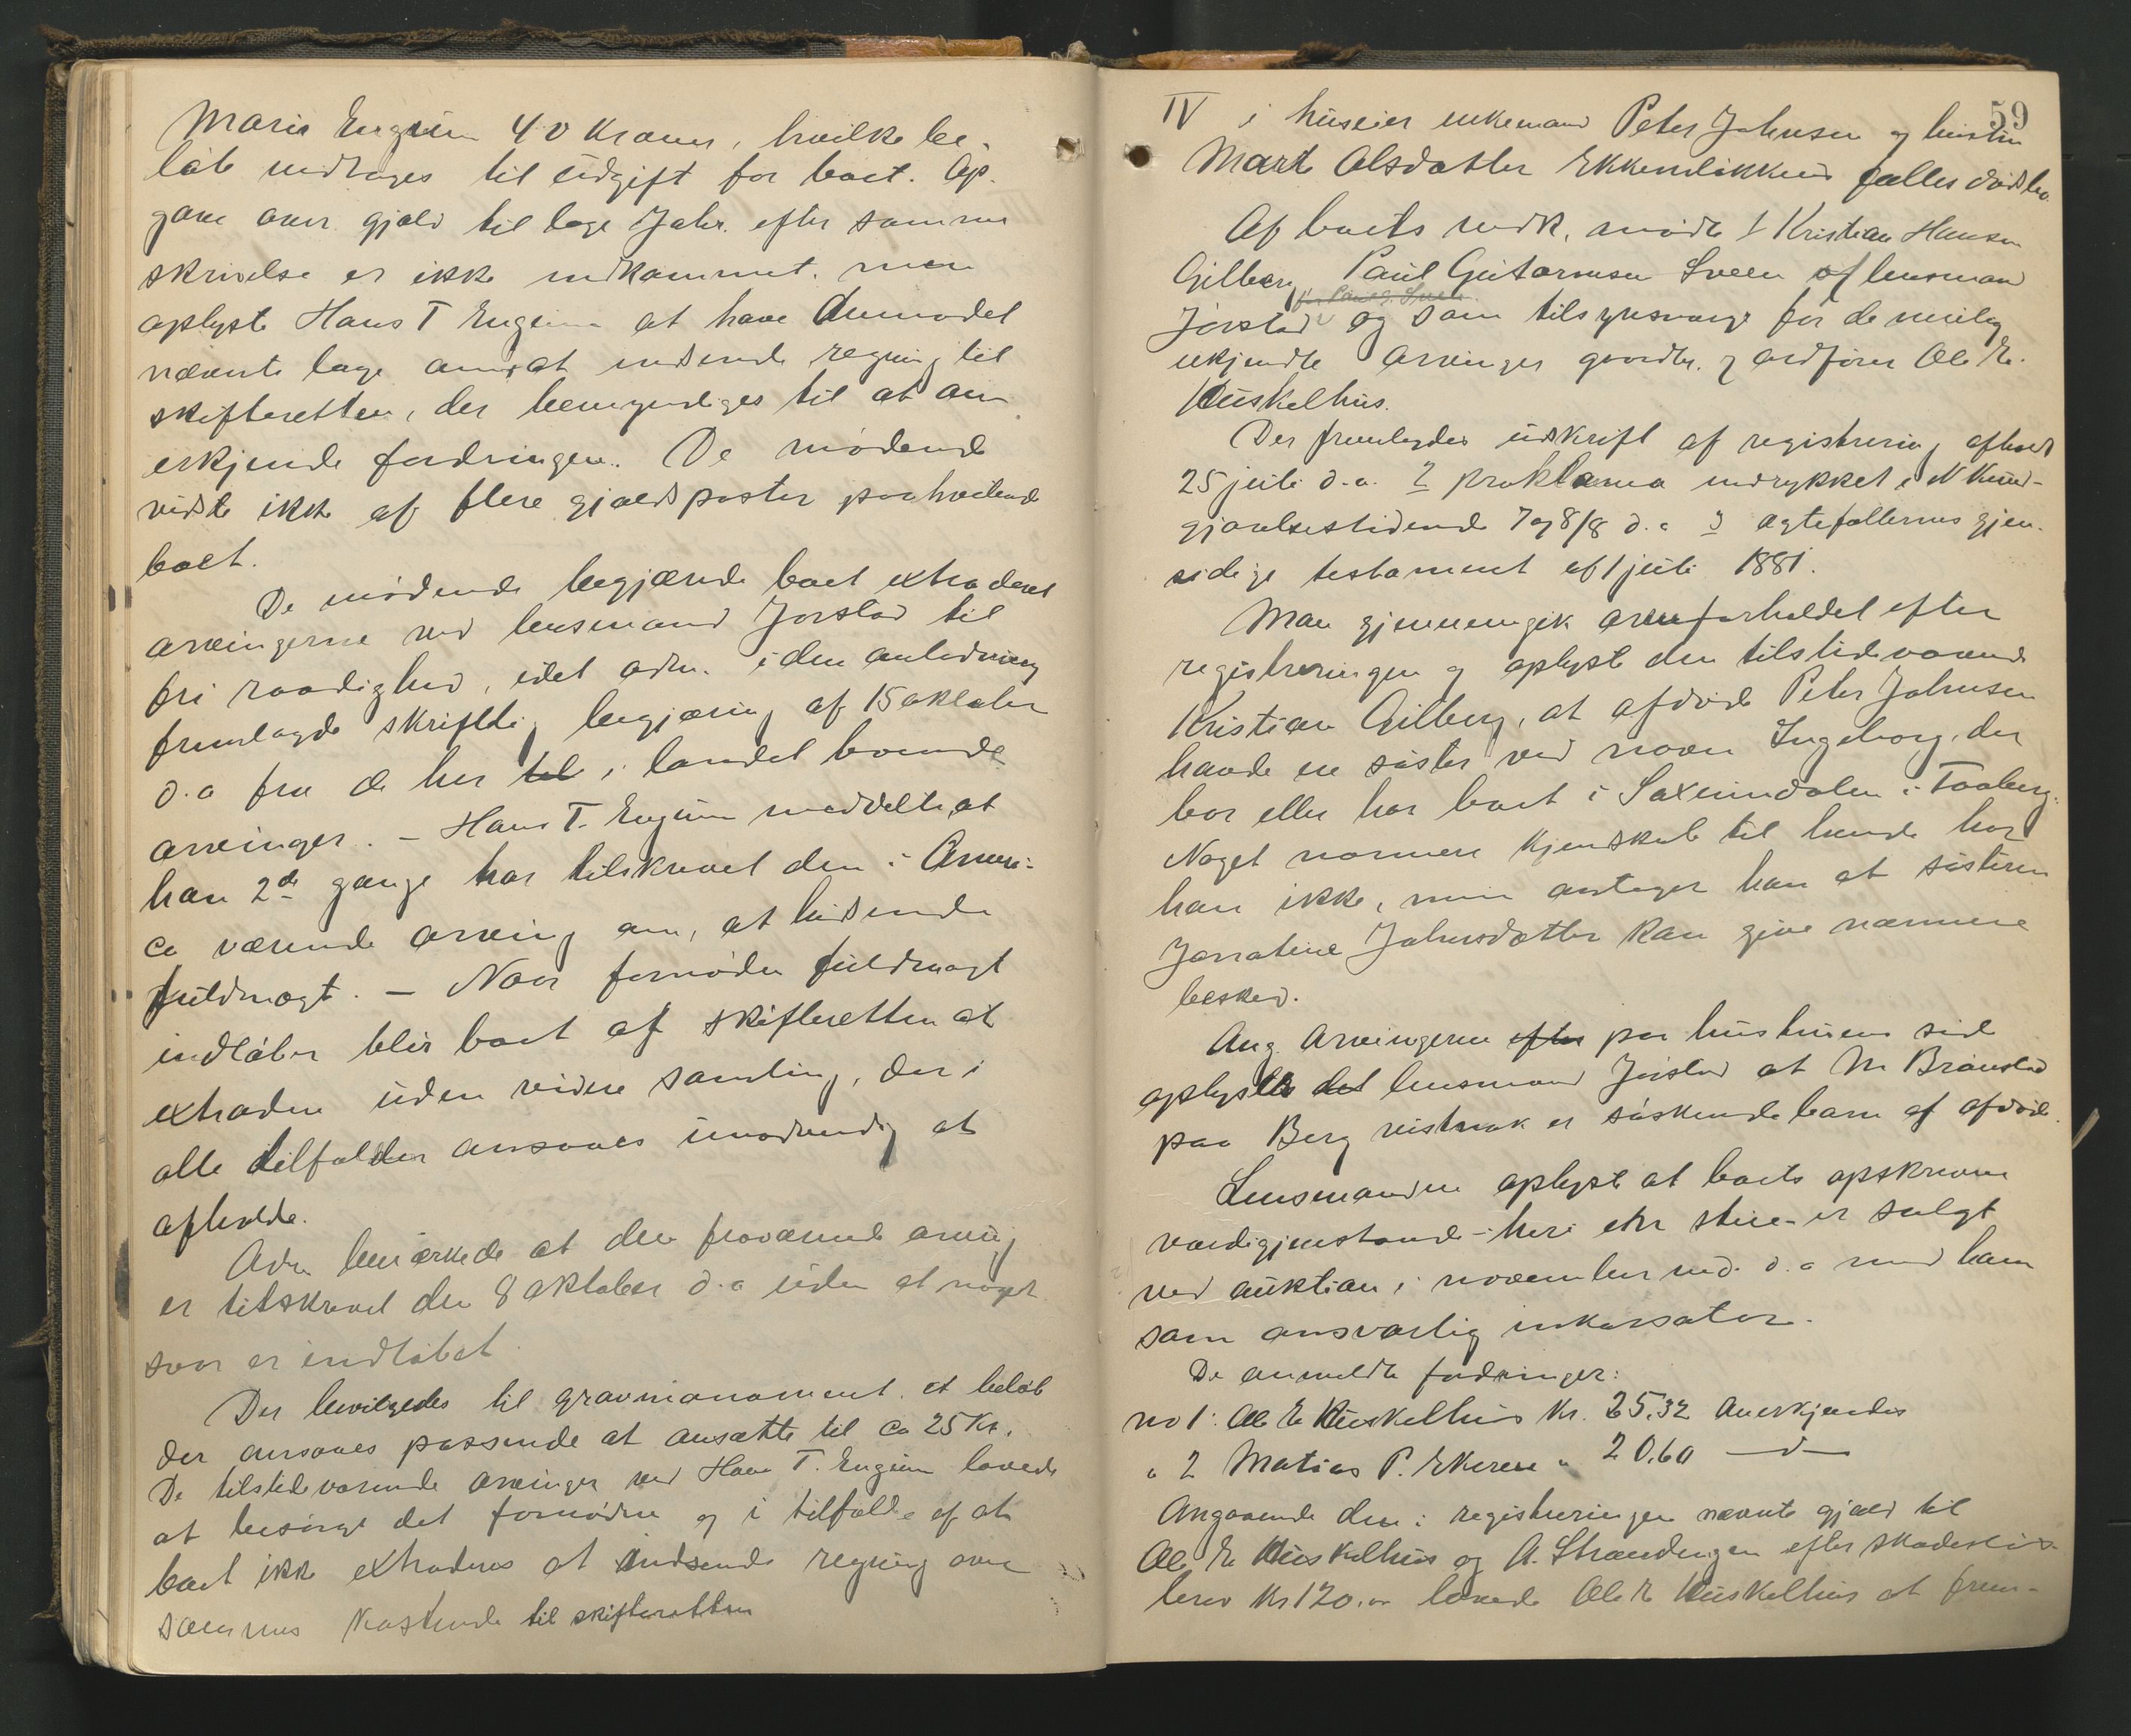 Maria Engum 40 Kroner, hvilke be-
løb medtages til udgift for boet. Op-
gave over gjæld til læge Jahr. efter samme
skrivelse er ikke indkommet. men
oplyste Hans T Engum at have anmodet
nævnte læge om at indsende regning til
skifteretten, der bemyndiges til at an
erkjende fordringen. De mødende
vidste ikke af flere gjældsposter paahvilende
boet.
De mødende begjærede boet extraderet
arvingerne ved lensmand Jorstad til
fri raadighed, idet adm. i den anledning
fremlagde skriftlig begjæring af 15 oktober
d.a fra de her til i landet boende
arvinger. – Hans T. Engum meddelte, at
han 2de gange har tilskrevet den i Ameri-
ca værende arving om, at indsende
fuldmagt. – Naar fornøden fuldmagt
indløber blir boet af skifteretten at
extradere uden videre samling, der i
alle tilfælder ansaaes unødvendig at
afholde.
Adm bemærkede at den fraværende arving
er tilskrevet den 8 oktober d.a uden at noget
svar er indløbet.
Der bevilgedes til gravmonoment et beløb
der ansaaes passende at ansætte til ca 25 Kr.
De tilstedeværende arvinger ved Hans T. Engum lovede
at besørge det fornødne og i tilfælde af at
boet ikke extraderes at indsende regning over
sammes kostende til skifteretten
59
IV i huseier enkemand Peter Johnsen og hustru
Marte Olsdatter Ekkernløkkens fælles dødsbo.
Af boets vedk. mødte 1 Kristian Hansen
Gilberg, Paul Guttormsen Sveen og lensmand
for Paul G. Sveen
Jorstad og som tilsynsværge for de mulig
ukjendte arvinger gaardbr. og ordfører Ole E.
Kuskelhus.
Der fremlagdes udskrift af registrering afholdt
25 juli d.a. 2 proklama indrykket i N Kund-
gjørelsestidende 7 og 8/8 d.a 3 ægtefællernes gjen-
sidige testament af 1 juli 1881.
Man gjennemgik arveforholdet efter
registreringen og oplyste den tilstedeværende
Kristian Gilberg, at afdøde Peter Johnsen
havde en søster ved navn Ingeborg, der
bor eller har boet i Saxumdalen i Faaberg.
Noget nærmere kjendskab til hende har
han ikke, men antager han at søsteren
Johnsdatter kan give nærmere
besked.
Ang. arvingerne efter paa hustruens side
oplyste det lensmand Jorstad at M Braastad
paa Berg vistnok er søskendebarn af afdøde.
Lensmanden oplyste at boets opskrevne
værdigjenstande – heri etn stue – er solgt
ved auktion i november md. d.a med ham
som ansvarlig inkassator.
De anmeldte fordringer:
no 1: Ole E Kuskelhus Kr. 25,32 anerkjendes
" 2 Matias P. Ekeren " 20,60 —d—
Angaaende den i registreringen nævnte gjæld til
Ole E Kuskelhus og A. Strandengen efter skadesløs-
brev Kr 120.oo lovede Ole E Kuskelhus at frem-